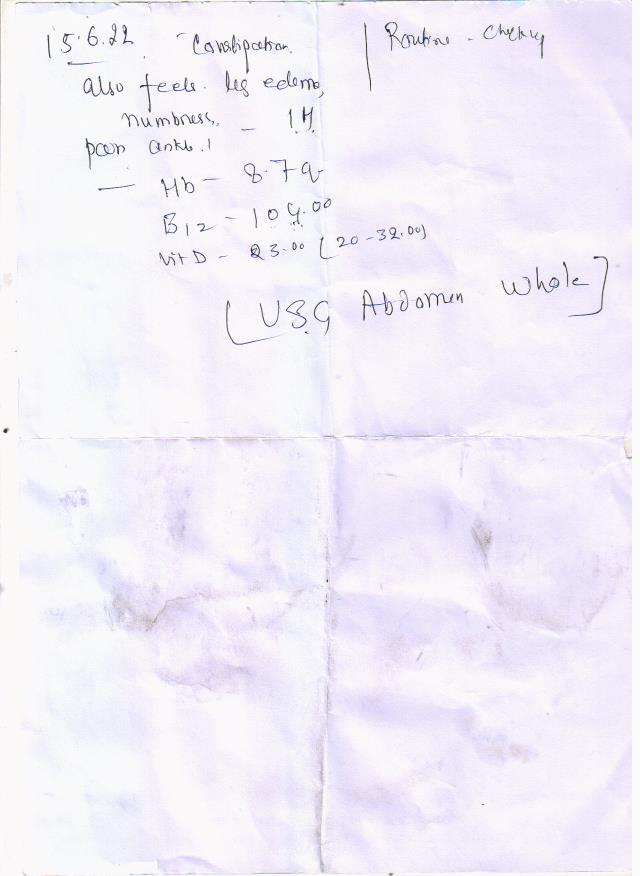 15.6.22 Constipation. Routine - checkup
also feels leg edema,
numbness, - 1M
pain ankle.
- Hb - 8.7 g
B12 - 104.00
Vit D - 23.00 (20-32.00)
[USG Abdomen Whole]